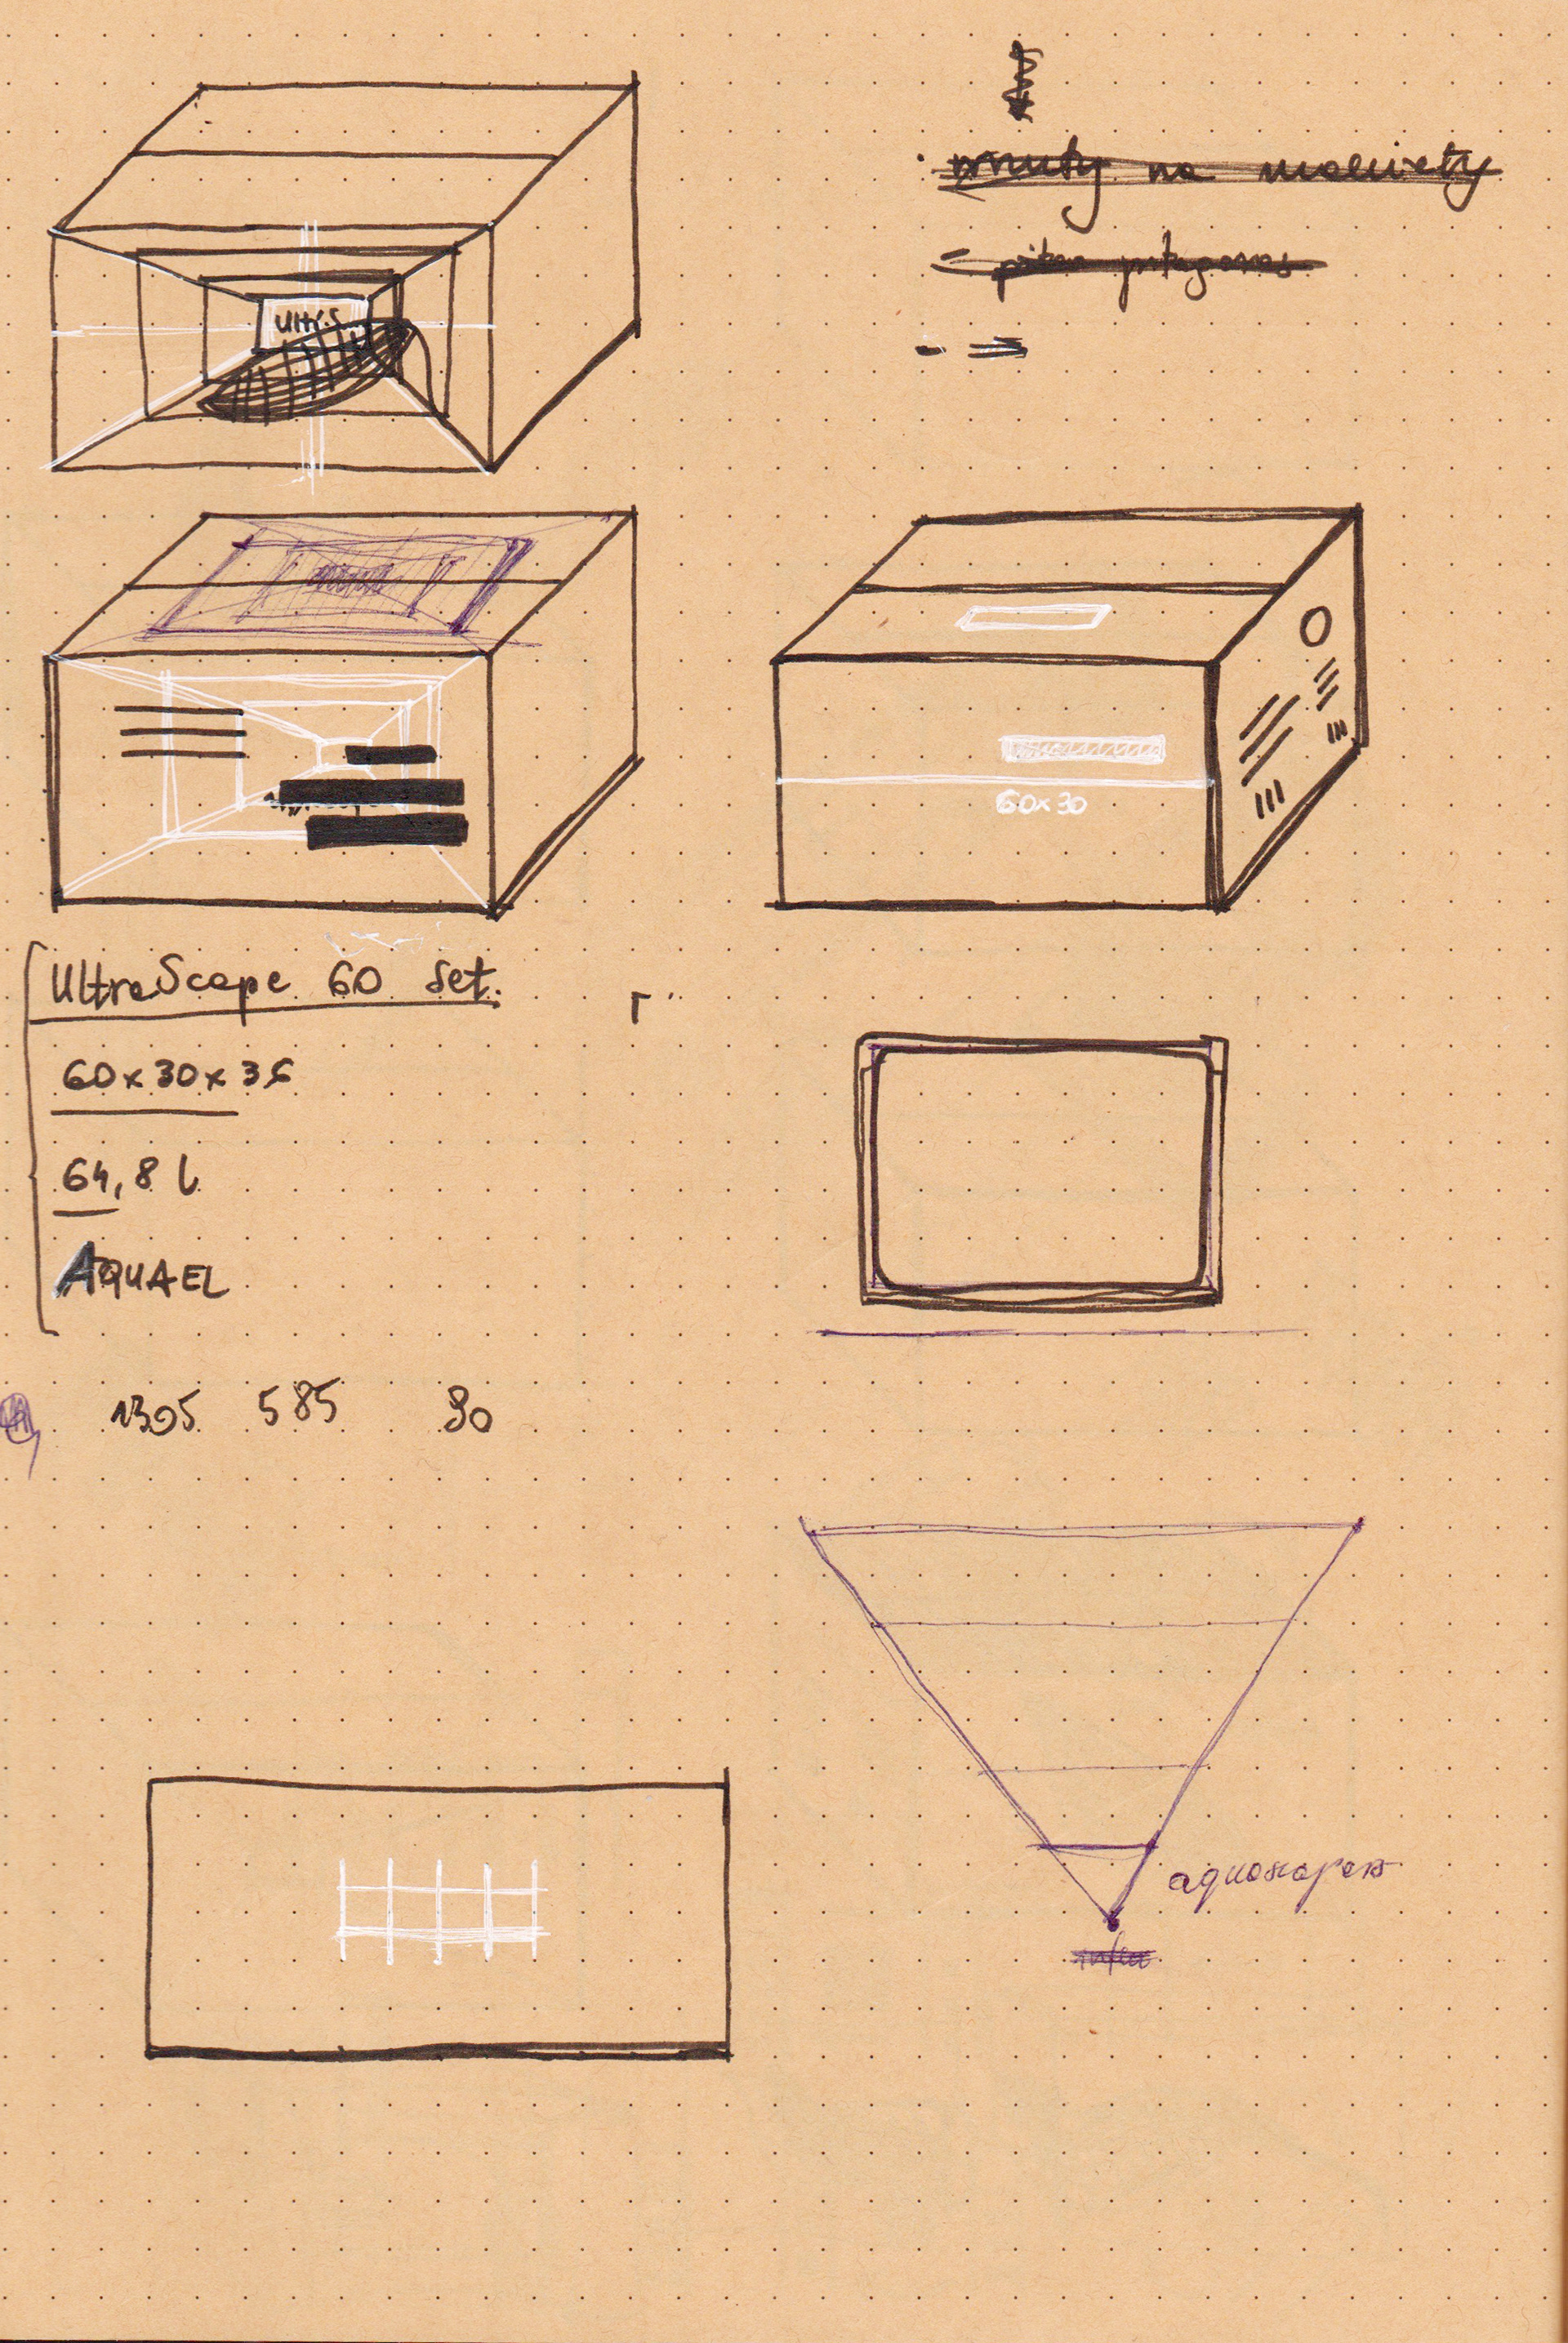 na
60x30
UltraScape 60 Set.
60x30x36
64,8 l
AQUAEL
1305 585 90
aquascapers